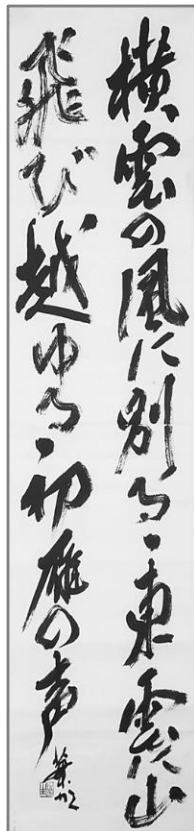 横雲の風に別るゝ東雲に山
飛び越ゆる初雁の声